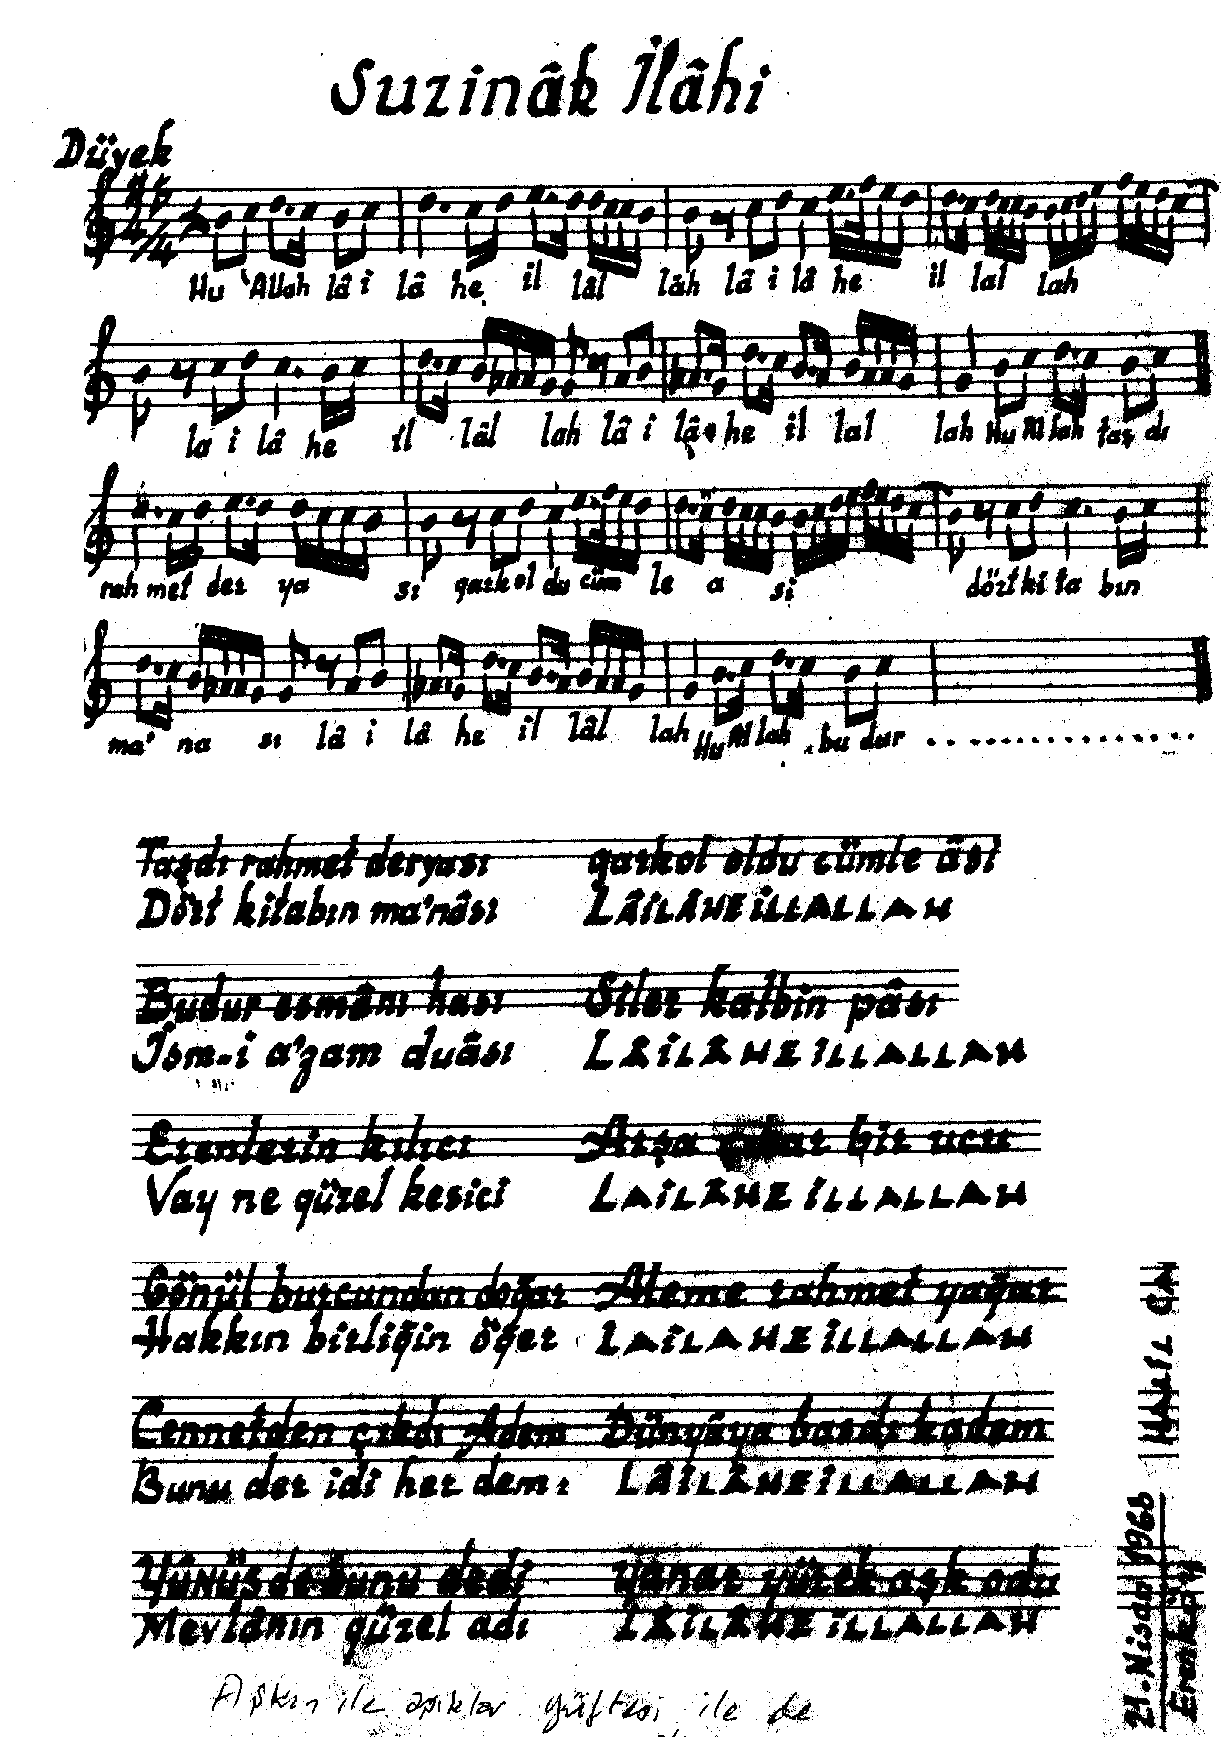 Suzinâk İlâhi
Düyek
4/4
Hu 'Allah lâ i lâ he il lâl lâh lâ i lâ he il lal lah
la i lâ he il lâl lah lâ i lâ he il lal lah Hu Allah taş dı
rah met der ya sı garkol du cüm le a si dört ki ta bın
ma' na sı lâ i lâ he il lâl lah Hu Allah bu dur . . . . . . . . . . . . . . . .
Taşdı rahmet deryası garkol oldu cümle âsi
Dört kitabın ma'nâsı LÂİLÂHE İLLALLAH
Budur esmânı hası Siler kalbin pâsı
İsm-i a'zam duâsı LÂİLÂHE İLLALLAH
Erenlerin kılıcı Arşa çıkar bir ucu
Vay ne güzel kesici LAİLÂHE İLLALLAH
Gönül burcundan doğar Aleme rahmet yağar
Hakkın birliğin öğer LAİLAHE İLLALLAH
Cennetden çıkdı Adem Dünyâya basdı kadem
Bunu der idi her dem LÂİLÂHE İLLALLAH
Yûnüs de bunu dedi Yanar yürek aşk odu
Mevlânın güzel adı LÂİLÂHE İLLALLAH
Aşkın ile aşıklar güftesi ile de
21.Nisan 1968 HALİL CAN
Erenköy